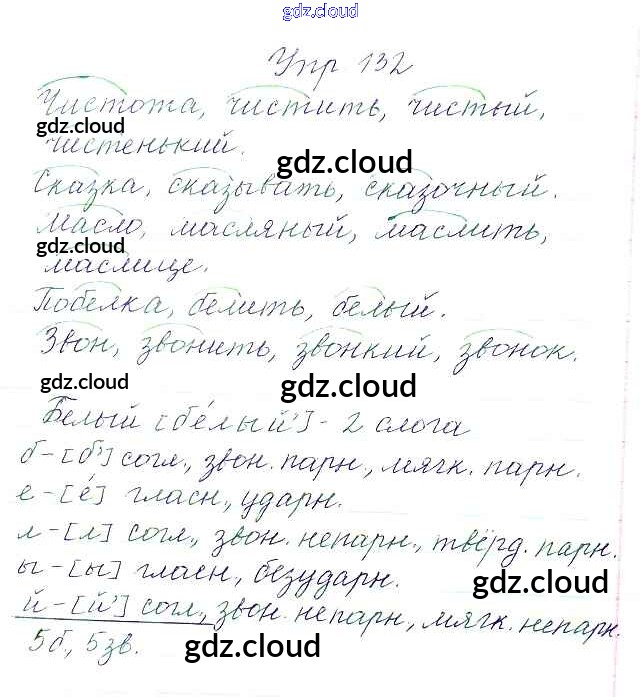 gdz.cloud
Упр 132
Чистота, чистить, чистый,
gdz.cloud
чистенький.
gdz.cloud
Сказка, сказывать, сказочный.
Масло, масляный, маслить,
gdz.cloud
маслице.
gdz.cloud
Побелка, белить, белый.
Звон, звонить, звонкий, звонок.
gdz.cloud
gdz.cloud
Белый [бе́лый'] - 2 слога
б - [б'] согл., звон. парн., мягк. парн.
е - [е́] гласн., ударн.
л - [л] согл., звон. непарн., твёрд. парн.
ы - [ы] гласн., безударн.
gdz.cloud
й - [й'] согл., звон. непарн., мягк. непарн.
5б, 5зв.
gdz.cloud